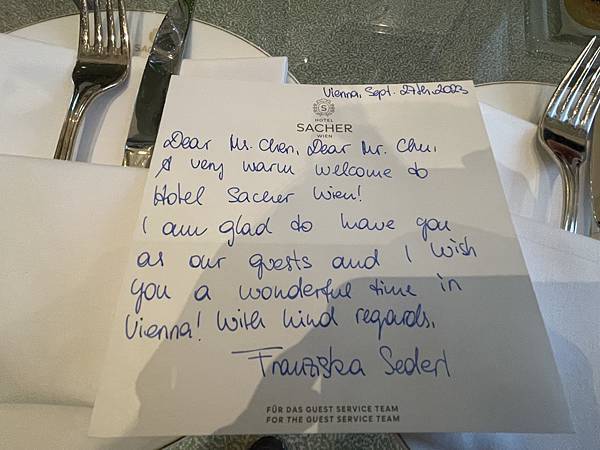 Vienna, Sept. 27th, 2023
S
HOTEL
SACHER
WIEN
Dear Ms. Chen, Dear Mr. Chu,
A very warm welcome to
Hotel Sacher Wien!
I am glad to have you
as our guests and I wish
you a wonderful time in
Vienna! With kind regards,
Franziska Sederl
FÜR DAS GUEST SERVICE TEAM
FOR THE GUEST SERVICE TEAM